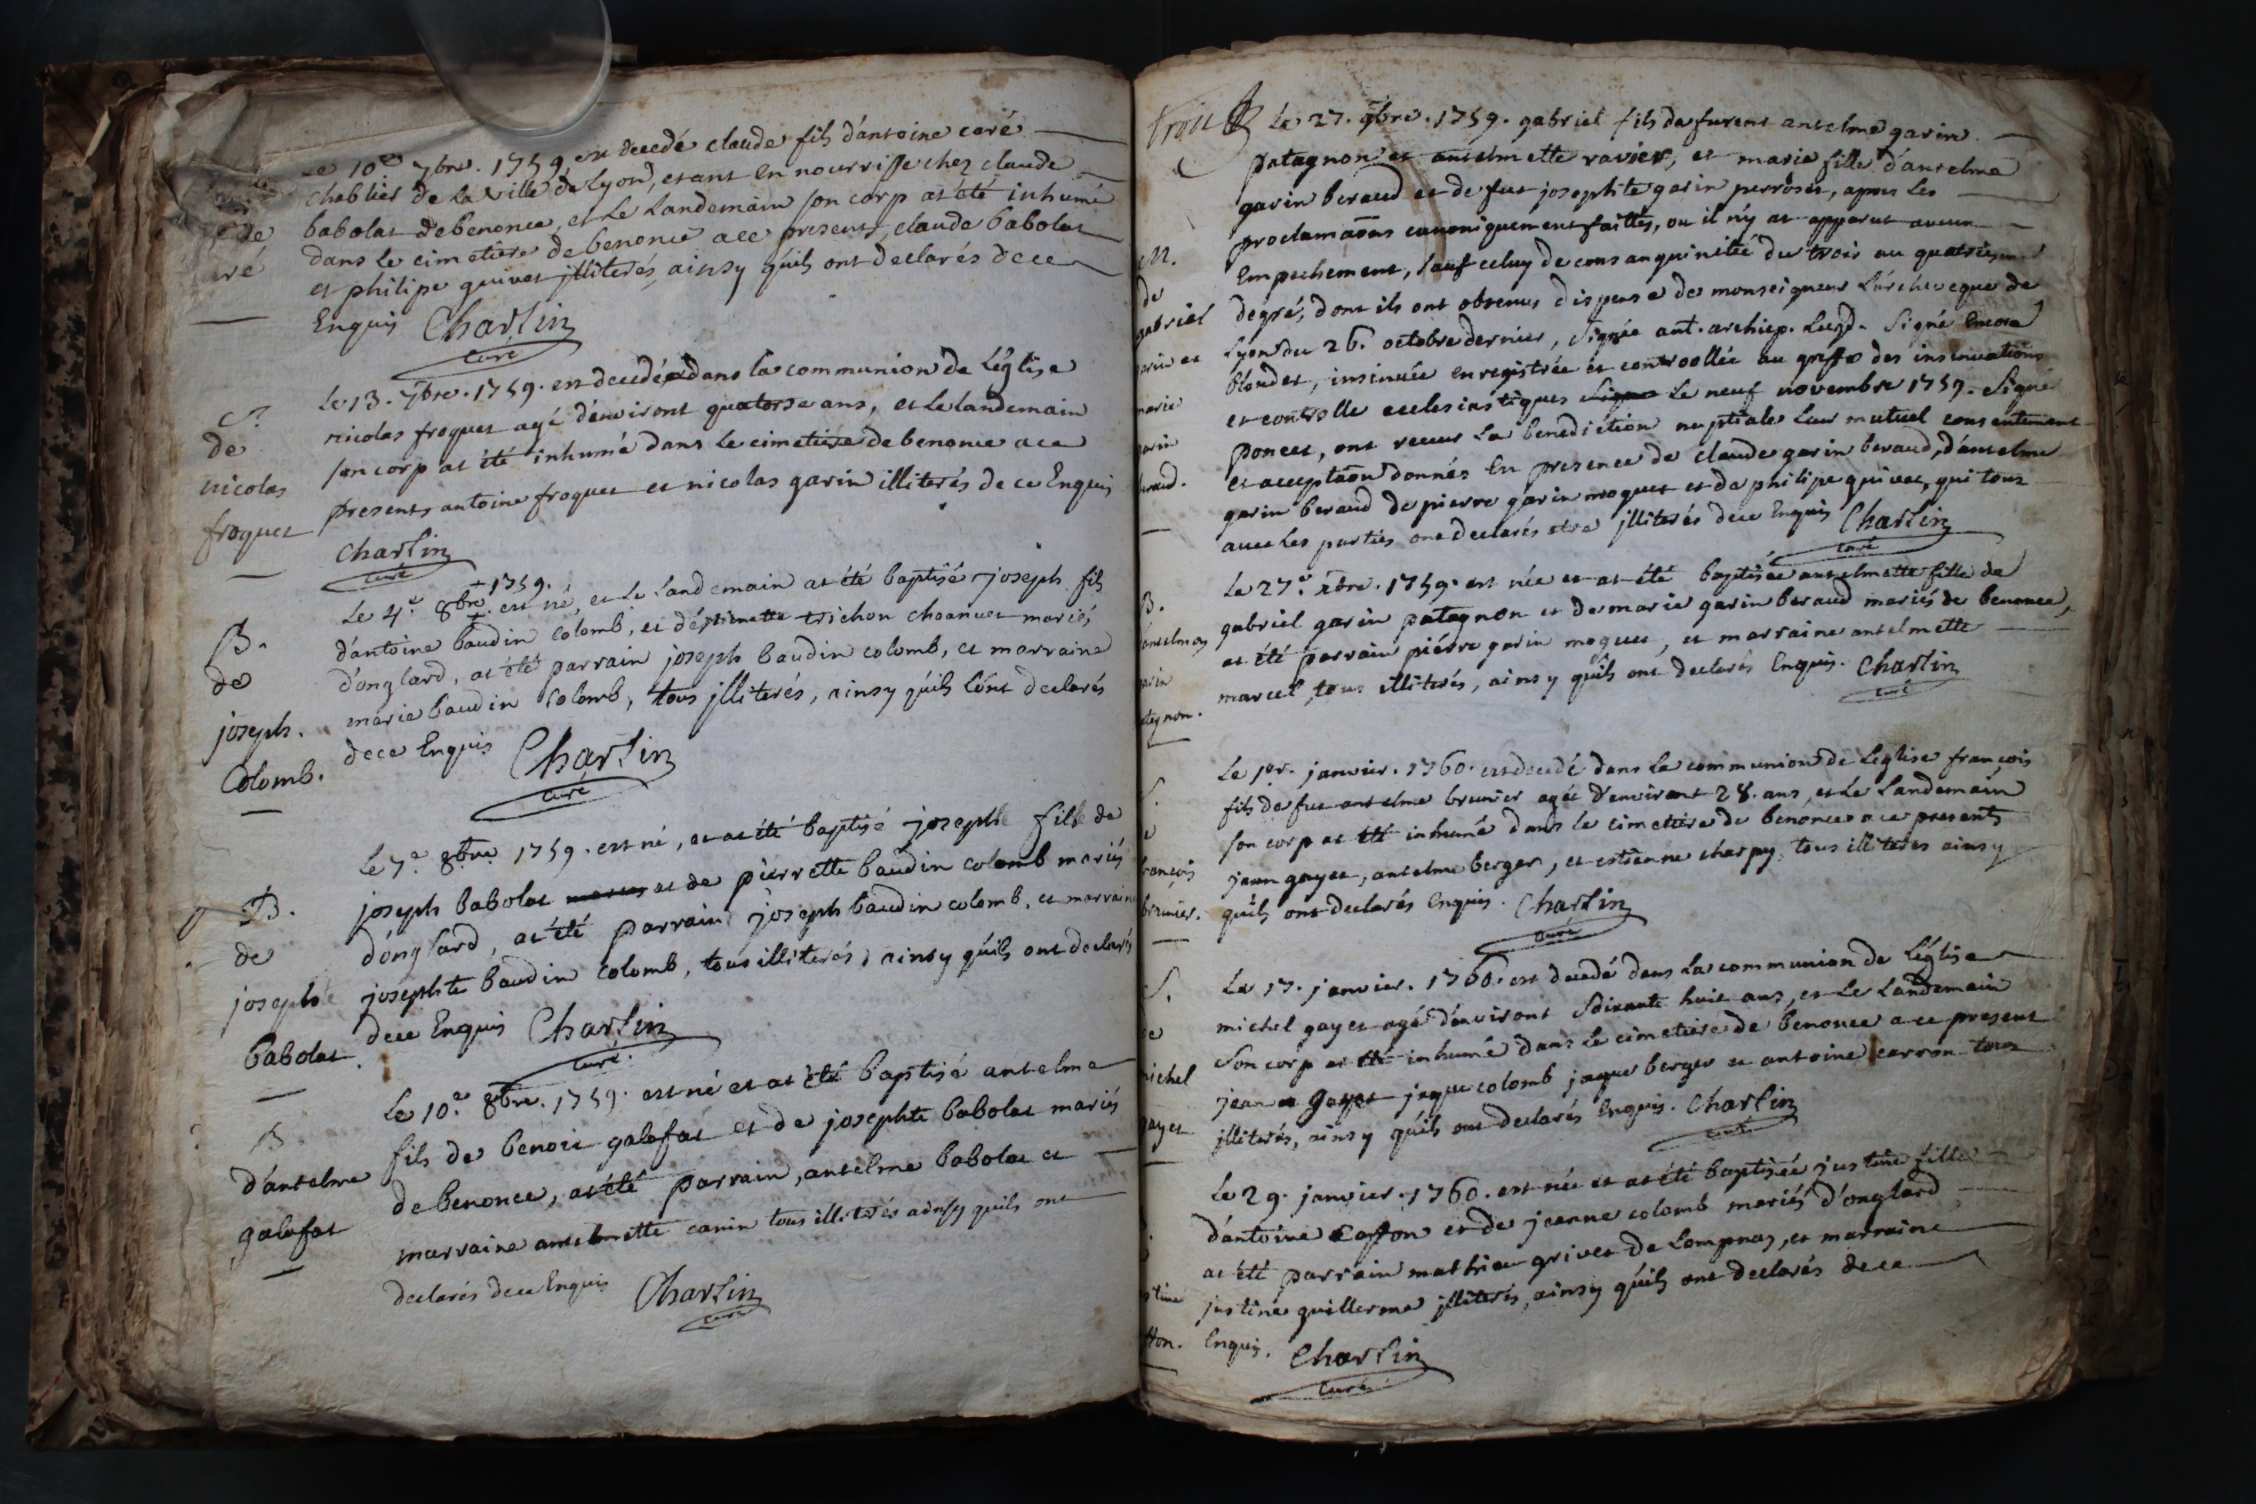 Le 10.e 7bre. 1759 est decedé claude fils d'antoine caré
chablier de la ville de Lyon, etant en nourrisse chez claude
babolat de benonce, et le Landemain son corp at été inhumé
dans le cimetiere de benonce a ce presents, claude babolat
et philipe quivet jlliterés, ainsy qu'ils ont declarés de ce
Enquis Charlin
curé
de
caré
Le 13. 7bre. 1759. est decedé dans la communion de L'église
nicolas froquet agé d'environt quatorse ans, et le landemain
son corp at été inhumé dans le cimetiere de benonce a ce
presents antoine froquet et nicolas garin illiterés de ce Enquis
Charlin
curé
S.
de
nicolas
froquet
Le 4.e 8bre 1759.
est né, et le Landemain at été baptisé joseph fils
d'antoine baudin colomb, et de pierrette trichon choanet mariés
d'onglard, at été parrain joseph baudin colomb, et marraine
marie baudin Colomb, tous jlliterés, ainsy qu'ils l'ont declarés
de ce Enquis Charlin
curé
B.
de
joseph.
Colomb.
Le 7.e 8bre 1759. est né, et at été baptisé josephte fille de
joseph babolat et de pierrette baudin colomb mariés
d'onglard, at été parrain joseph baudin colomb, et marraine
josephte baudin colomb, tous illiterés, ainsy qu'ils ont declarés
de ce Enquis Charlin
curé.
B.
de
josephte
babolat.
Le 10.e 8bre. 1759. est né et at été baptisé antelme
fils de benoit galafat et de josephte babolat mariés
de benonce, at été parrain, antelme babolat et
marraine antelmette canin tous illiterés ainsy quils ont
declarés de ce Enquis Charlin
curé
B.
d'antelme
galafat
trois
Le 27. 9bre. 1759. gabriel fils de furent antelme garin
patagnon et antelmette ravier, et marie fille d'antelme
garin beraud et de fut josephte garin perroset, apres les
proclamaons canoniquement faittes, ou il n'y at apparut aucun
Empechement, sauf celuy de consanguinitée du trois au quatriem
degré, dont ils ont obtenus dispense de monseigneur L'archeveque de
Lyon du 26. octobre dernier, signée ant. archiep. Lugd. Signé Encore
blondet, insinuée enregistrée et controollée au greffe des insinuations
et controlle ecclesiastiques Le neuf novembre 1759. Signé
poncet, ont receus La benediction nuptiale Leur mutuel consentement
et acceptaon donnés En presence de claude garin beraud, d'antelme
garin beraud de pierre garin moquet et de philipe quivet, qui tous
avec les parties ont declarés etre jlliterés de ce Enquis Charlin
curé
M.
de
gabriel
garin et
marie
garin
beraud.
Le 27.e Xbre. 1759. est née et at été baptisée antelmette fille de
gabriel garin patagnon et de marie garin beraud mariés de benonce,
at été parrain piérre garin moquet, et marraine antelmette
marcel, tous illiterés, ainsy qu'ils ont declarés Enquis. Charlin
curé
B.
garin
Le 1er. janvier. 1760. est decedé dans la communion de Leglise françois
fils de fut antelme brunier agée d'environt 28. ans, et Le Landemain
son corp at été inhumé dans le cimetiere de benonce a ce presents
jean gayet, antelme berger, et estienne charpy, tous illiterés ainsy
qu'ils ont declarés Enquis. Charlin
curé
S.
françois
brunier.
Le 17. janvier. 1760. est decedé dans la communion de L'église
michel gayet agé d'environt soixante huit ans, et Le Landemain
son corp at été inhumé dans le cimetiere de benonce a ce present
jean gayet jaque colomb jaque berger et antoine carron tous
jlliterés, ainsy qu'ils ont declarés Enquis. Charlin
curé
S.
de
michel
gayet
Le 29. janvier. 1760. est née et at été baptisée justine fille
d'antoine Caffon et de jeanne colomb mariés d'onglard
at été parrain mathieu grivet de Lompnas, et marraine
justine guillerme jlliterés, ainsy qu'ils ont declarés de ce
Enquis. Charlin
curé.